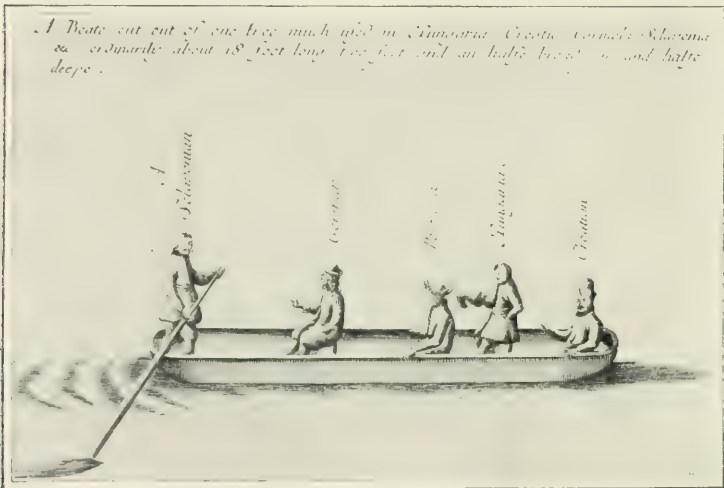 A Boate cut out of one tree much used in Hungaria Croatia Carniola Sclavonia
&c ordinarily about 18 foot long two foot and an halfe broad and halfe
deepe.
A
Sclavonian
German
Hungarian
Croatian